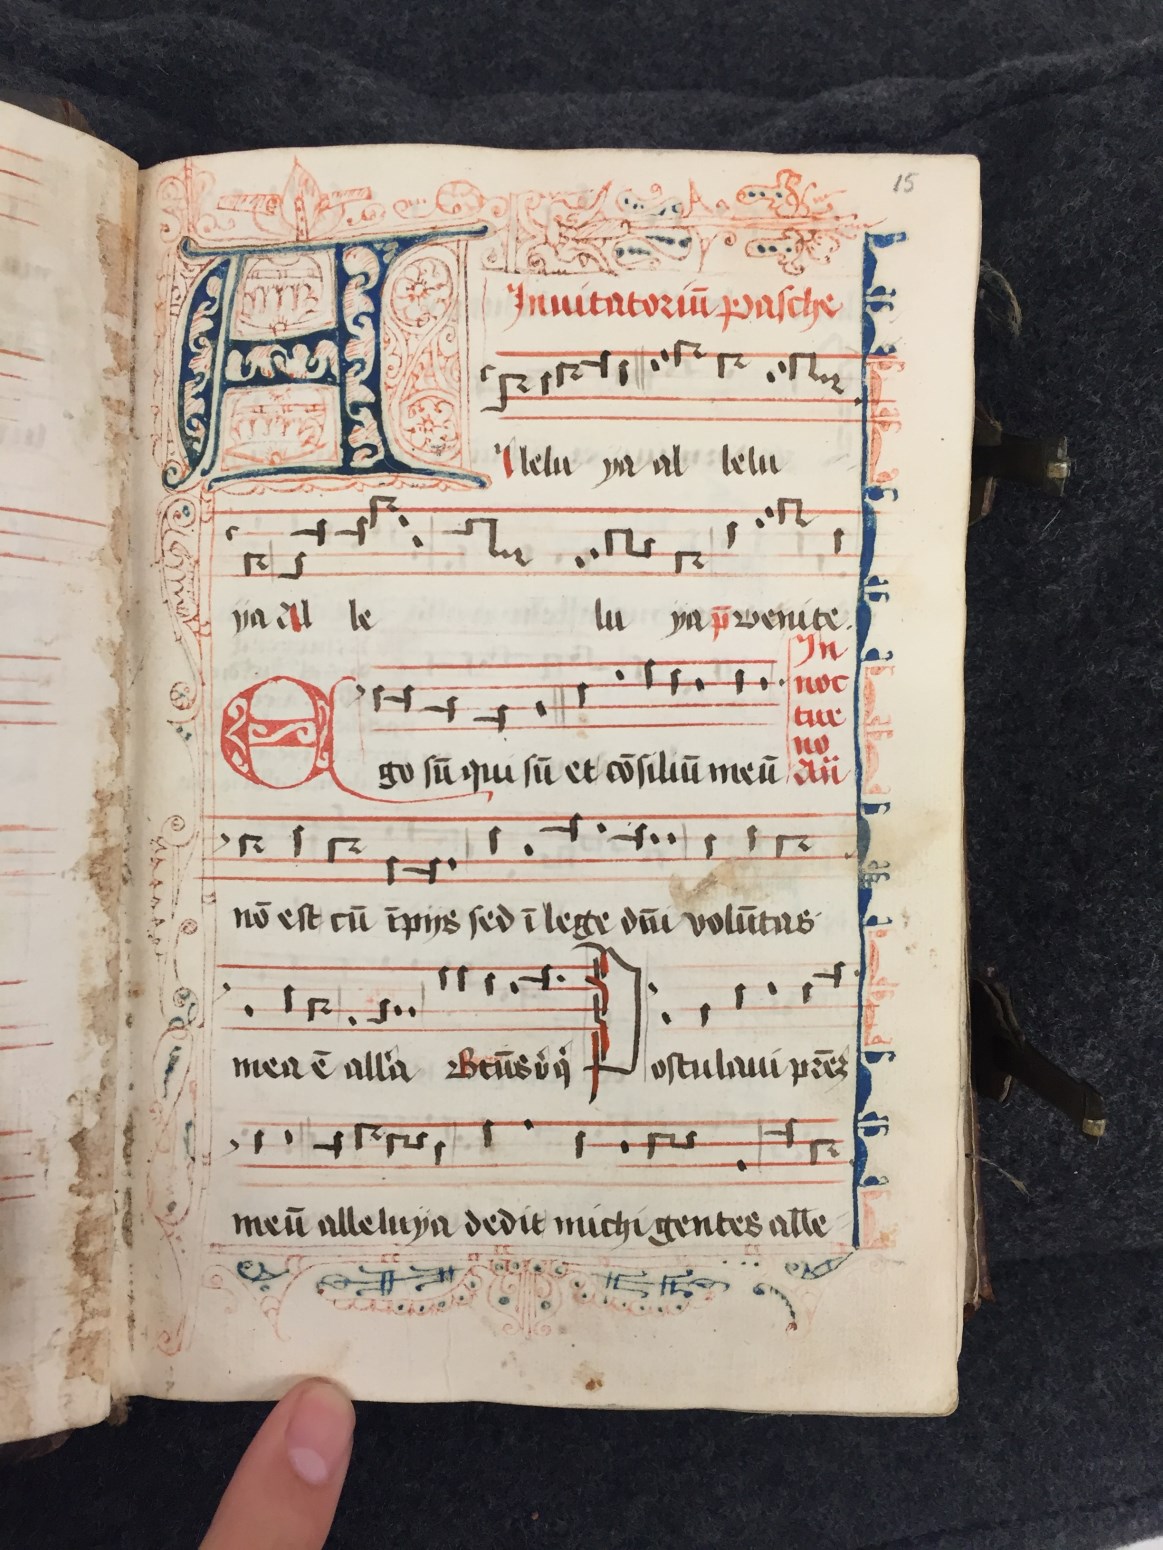 15
Inuitatoriū pasche
Allelu ya al lelu
ya All le lu ya p̄s venite.
In
noc
tur
no
Añ
Ego sū qui sū et cōsiliū meū
nō est cū īpijs sed ī lege dn̄i volūtas
mea ē all'a Btūs Postulaui pr̄eȝ
meū alleluya dedit michi gentes alle